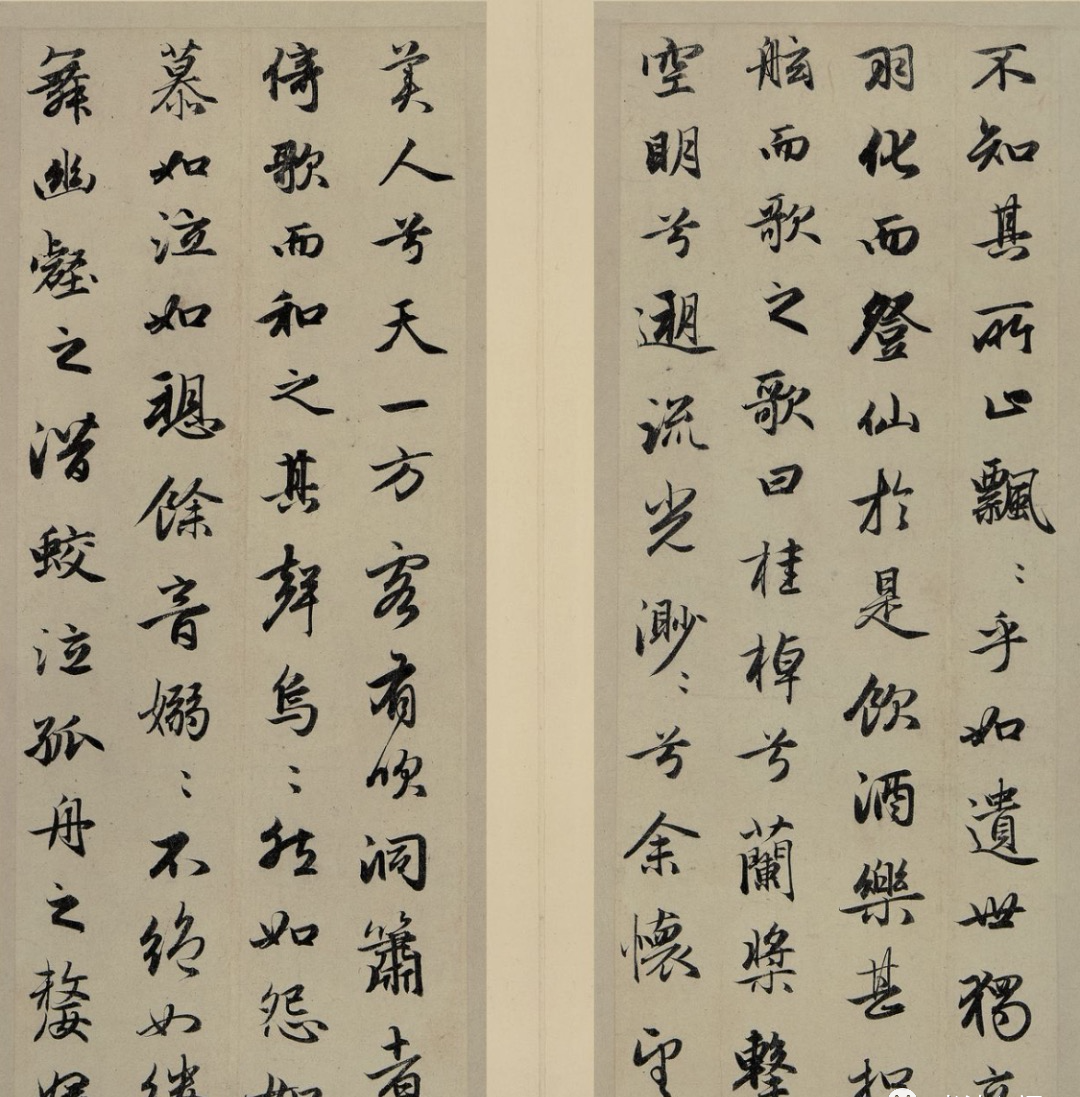 不知其所止飄〻乎如遺世獨立
羽化而登仙於是飲酒樂甚扣
舷而歌之歌曰桂棹兮蘭槳擊
空明兮遡流光渺〻兮余懷望
美人兮天一方客有吹洞簫者
倚歌而和之其聲烏〻然如怨如
慕如泣如𢤲餘音嫋〻不絕如縷
舞幽壑之潛蛟泣孤舟之嫠婦